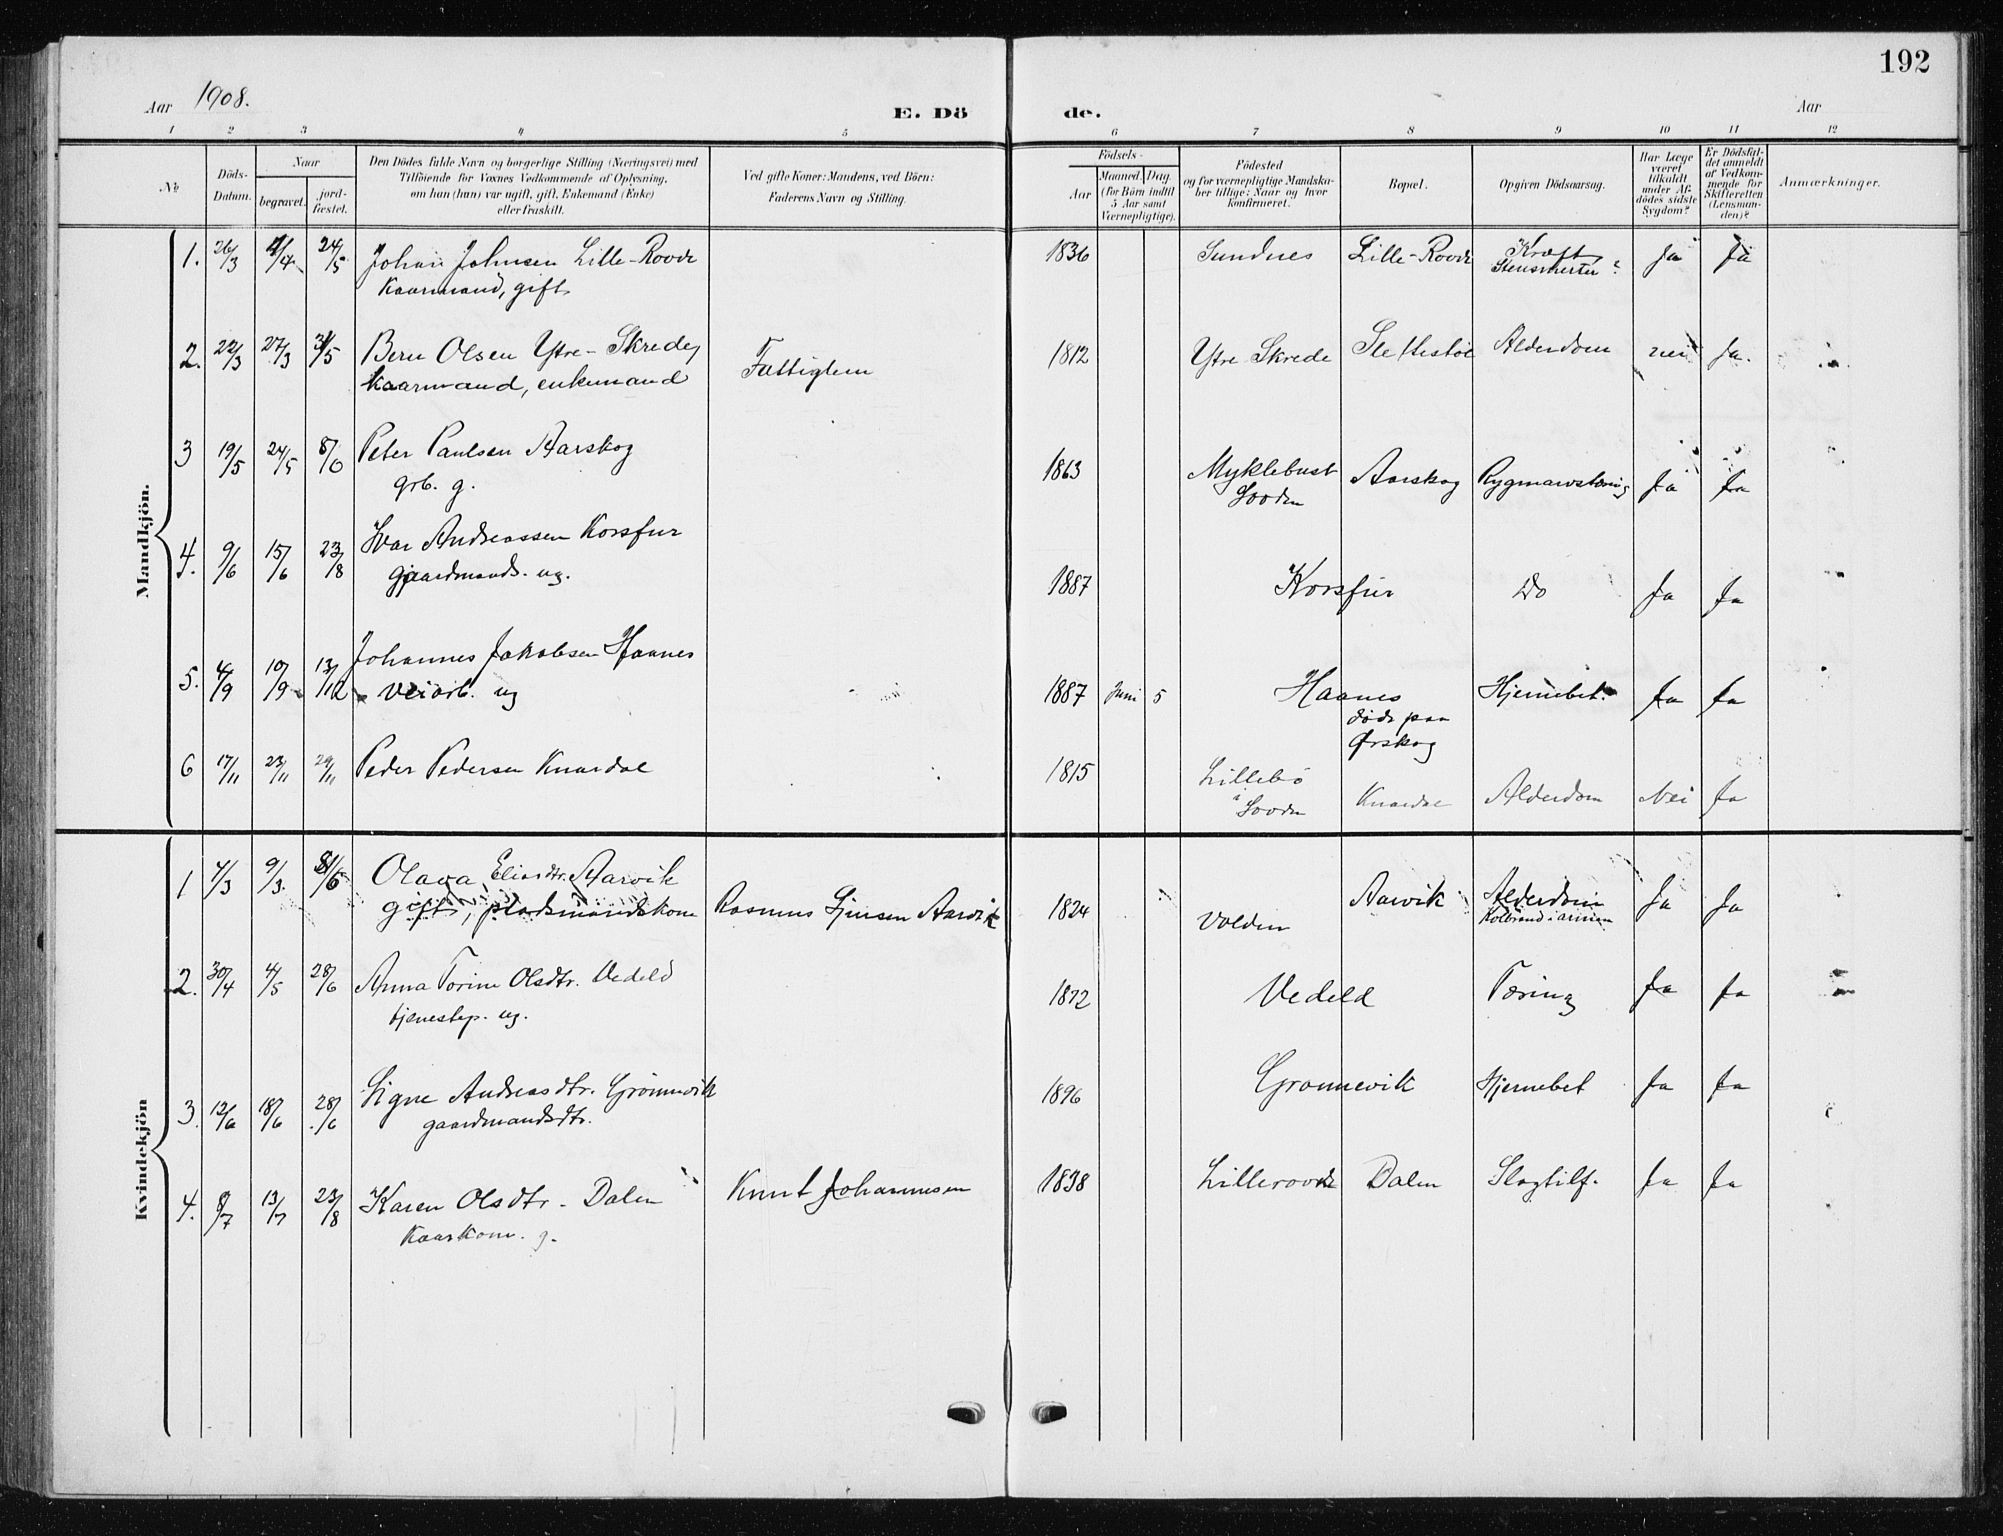 192
Aar 1908.
E. Dö de.
Aar
1 2 3 4 5 6 7 8 9 10 11 12
No
Döds-
Datum.
Naar
begravet.
jord-
fæstet.
Den Dödes fulde Navn og borgerlige Stilling (Næringsvei) med
Tilföiende for Voxnes Vedkommende af Oplysning,
om han (hun) var ugift, gift, Enkemand (Enke)
eller fraskilt.
Ved gifte Koner: Mandens, ved Börn:
Faderens Navn og Stilling.
Födsels-
Aar
Maaned. Dag.
(for Börn indtil
5 Aar samt
Værnepligtige).
Födested
og for værnepligtige Mandska-
ber tillige: Naar og hvor
konfirmeret.
Bopæl.
Opgiven Dödsaarsag.
Har Læge
været
tilkaldt
under Af-
dödes sidste
Sygdom?
Er Dödsfal-
det anmeldt
af Vedkom-
mende for
Skifteretten
(Lensman-
den)?
Anmærkninger.
Mandkjön.
1. 26/3 4/4 24/5 Johan Johnsen Lille-Roovde 1836 Sundnes Lille-Roovde Kræft Ja Ja
Kaarmand, gift
2. 22/3 27/3 31/5 Bern Olsen Ytre-Skrede, Fattiglem 1812 Ytre Skrede Slettestøl Alderdom nei Ja.
kaarmand, enkemand
3 19/5 24/5 8/6 Peter Paulsen Aarskog 1863 Myklebust Aarskog Rygmarvstæring Ja Ja
grb. g. Sovden
4. 9/6 15/6 23/8 Ivar Andreassen Korsfur 1887 Korsfur Do Ja Ja
gaardmands. ug.
5. 4/9 10/9 13/12 Johannes Jakobsen Haanes 1887 Juni 5 Haanes Hjernebet. Ja Ja
veiarb. ug døde paa
Ørskog
6 17/11 23/11 29/11 Peder Pedersen Knardal 1815 Lillebø Knardal Alderdom Nei Ja
i Sovden
Kvindekjön
1 4/3 9/3. 31/5 Olava Eliasdtr. Aarvik Rasmus Sjursen Aarvik 1824 Volden Aarvik Alderdom Ja Ja
gift, pladsmandskone Kolbrand i armen
2. 30/4 4/5 28/6 Anna Torine Olsdtr. Vedeld 1872 Vedeld Tæring Ja Ja
tjenestep. ug.
3. 12/6 18/6 28/6 Signe Andreasdtr. Grønnevik 1896 Grønnevik Hjernebet Ja Ja
gaardmandsdtr.
4. 8/7 13/7 23/8 Karen Olsdtr. Dalen Knut Johannesen 1838 Lilleroovde Dalen Slagtilf. Ja Ja
Kaarkone. g.